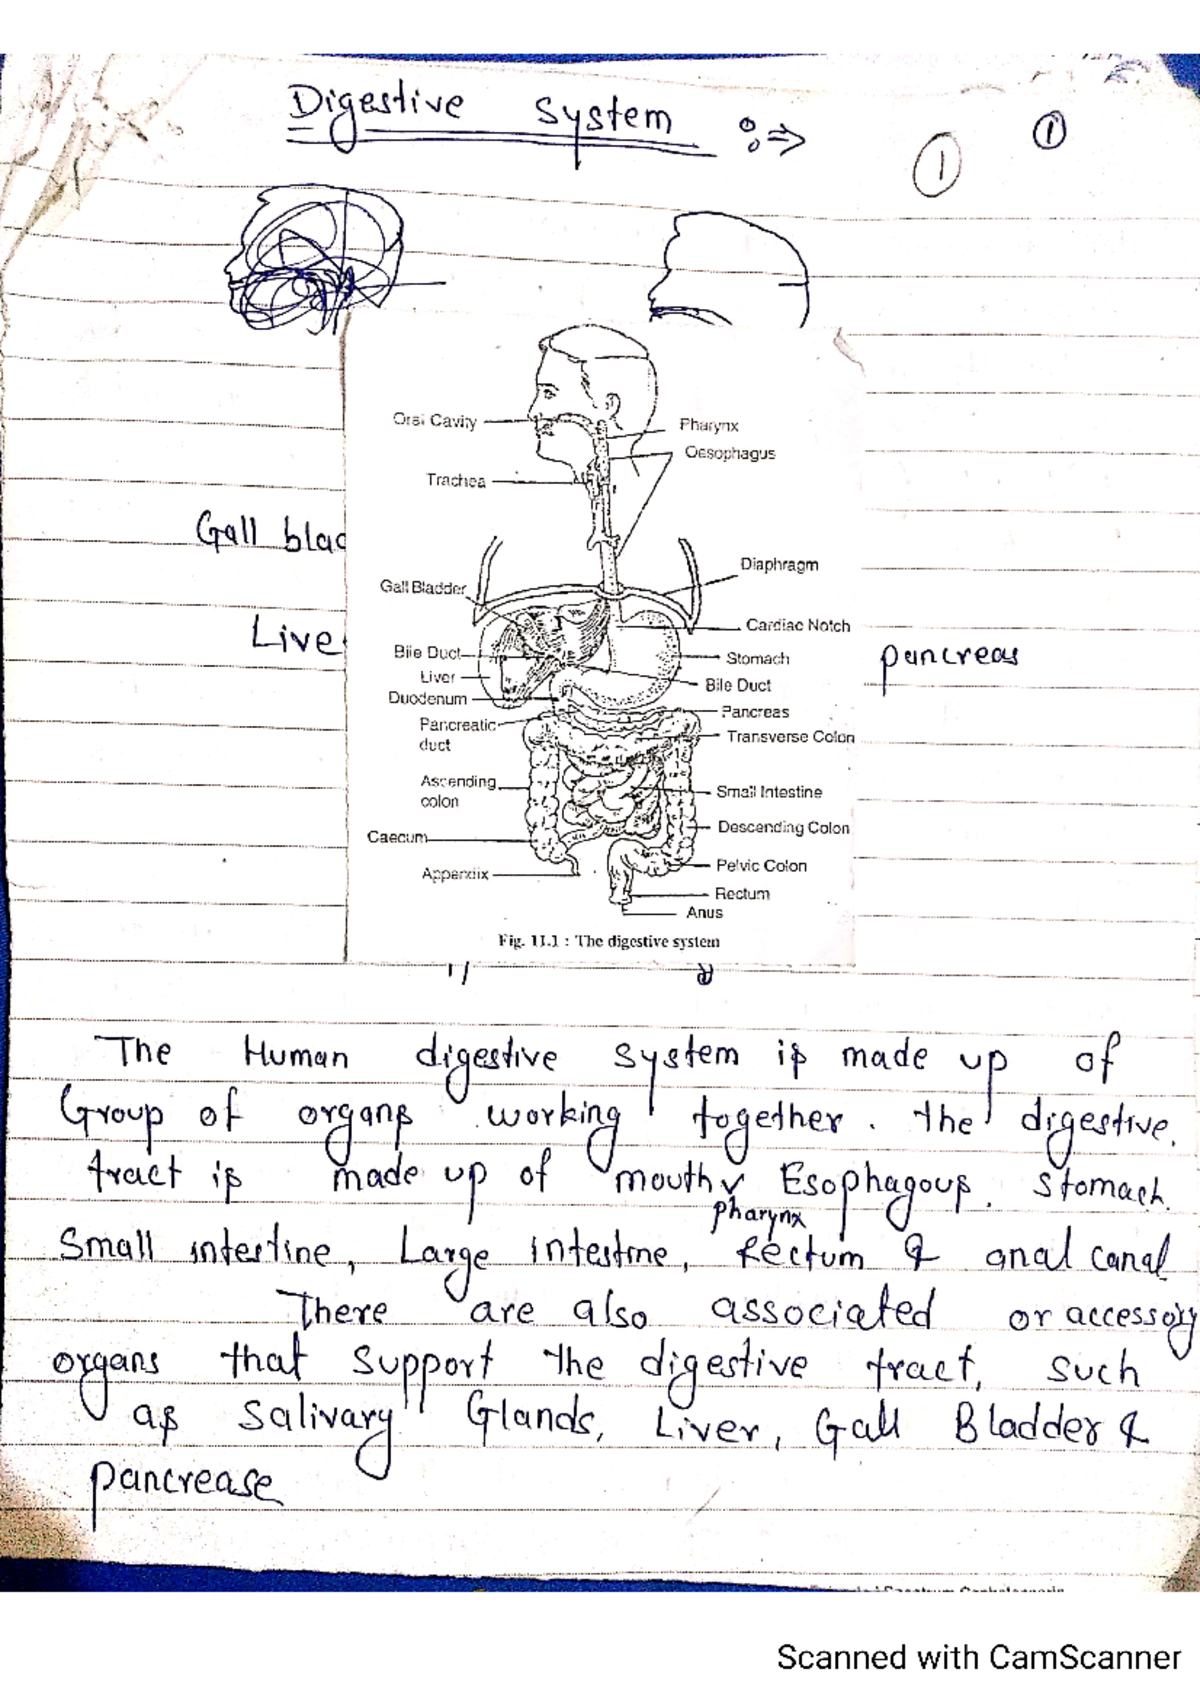 Digestive System :⇒
1
1
Oral Cavity
Pharynx
Oesophagus
Trachea
Gall blad
Diaphragm
Gall Bladder
Cardiac Notch
Live
Bile Duct
Stomach
pancreas
Liver
Bile Duct
Duodenum
Pancreas
Pancreatic
duct
Transverse Colon
Ascending
colon
Small Intestine
Descending Colon
Caecum
Pelvic Colon
Appendix
Rectum
Anus
Fig. 11.1 : The digestive system
The Human digestive system is made up of
Group of organs working together. the digestive
tract is made up of mouth Esophagous, Stomach.
pharynx
Small intestine, Large intestine, Rectum & anal canal
There are also associated or accessory
organs that support the digestive tract, such
as Salivary Glands, Liver, Gall Bladder &
pancrease
Scanned with CamScanner